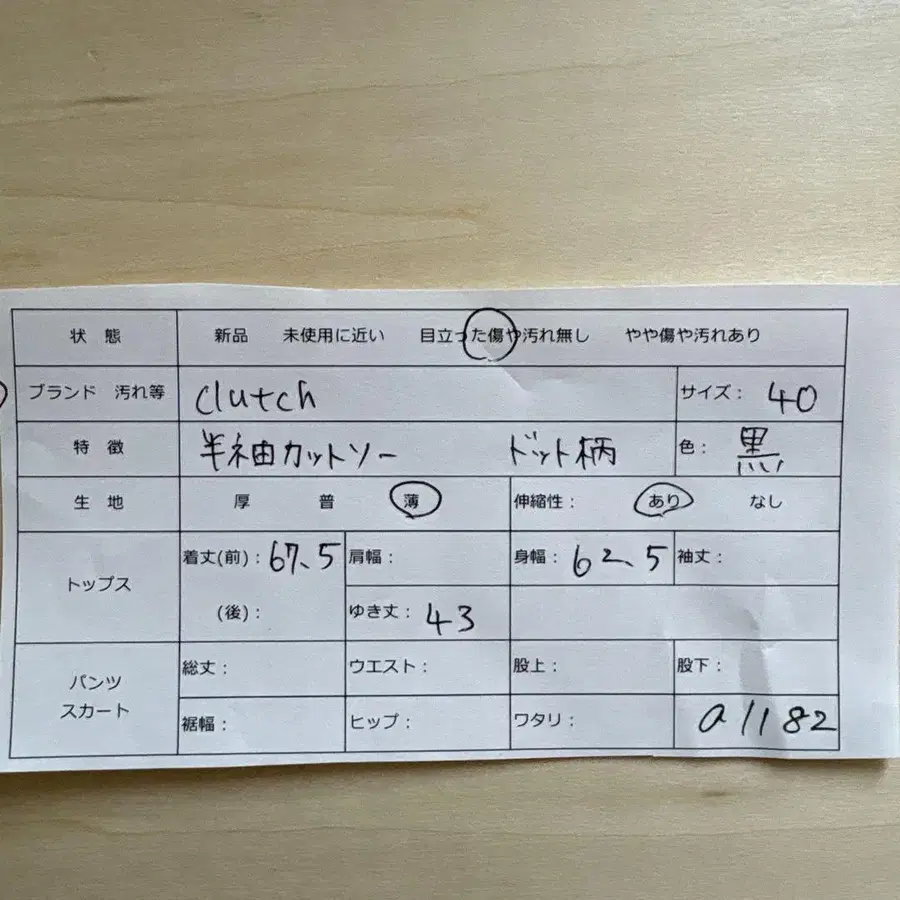 状 態 新品 未使用に近い 目立った傷や汚れ無し やや傷や汚れあり
ブランド 汚れ等 clutch サイズ: 40
特 徴 半袖カットソー ドット柄 色: 黒
生 地 厚 普 薄 伸縮性: あり なし
トップス 着丈(前): 67.5 肩幅: 身幅: 62.5 袖丈:
(後): ゆき丈: 43
パンツ スカート 総丈: ウエスト: 股上: 股下:
裾幅: ヒップ: ワタリ: a1182